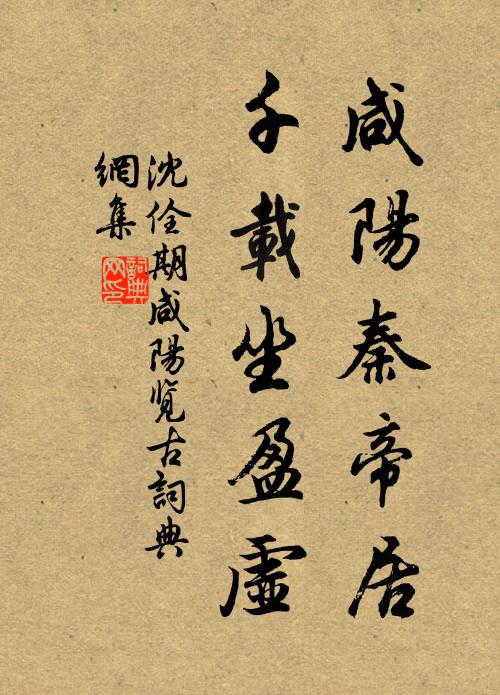 咸陽秦帝居
千載坐盈虛
沈佺期咸陽覽古詞典
網集
詞典
网印